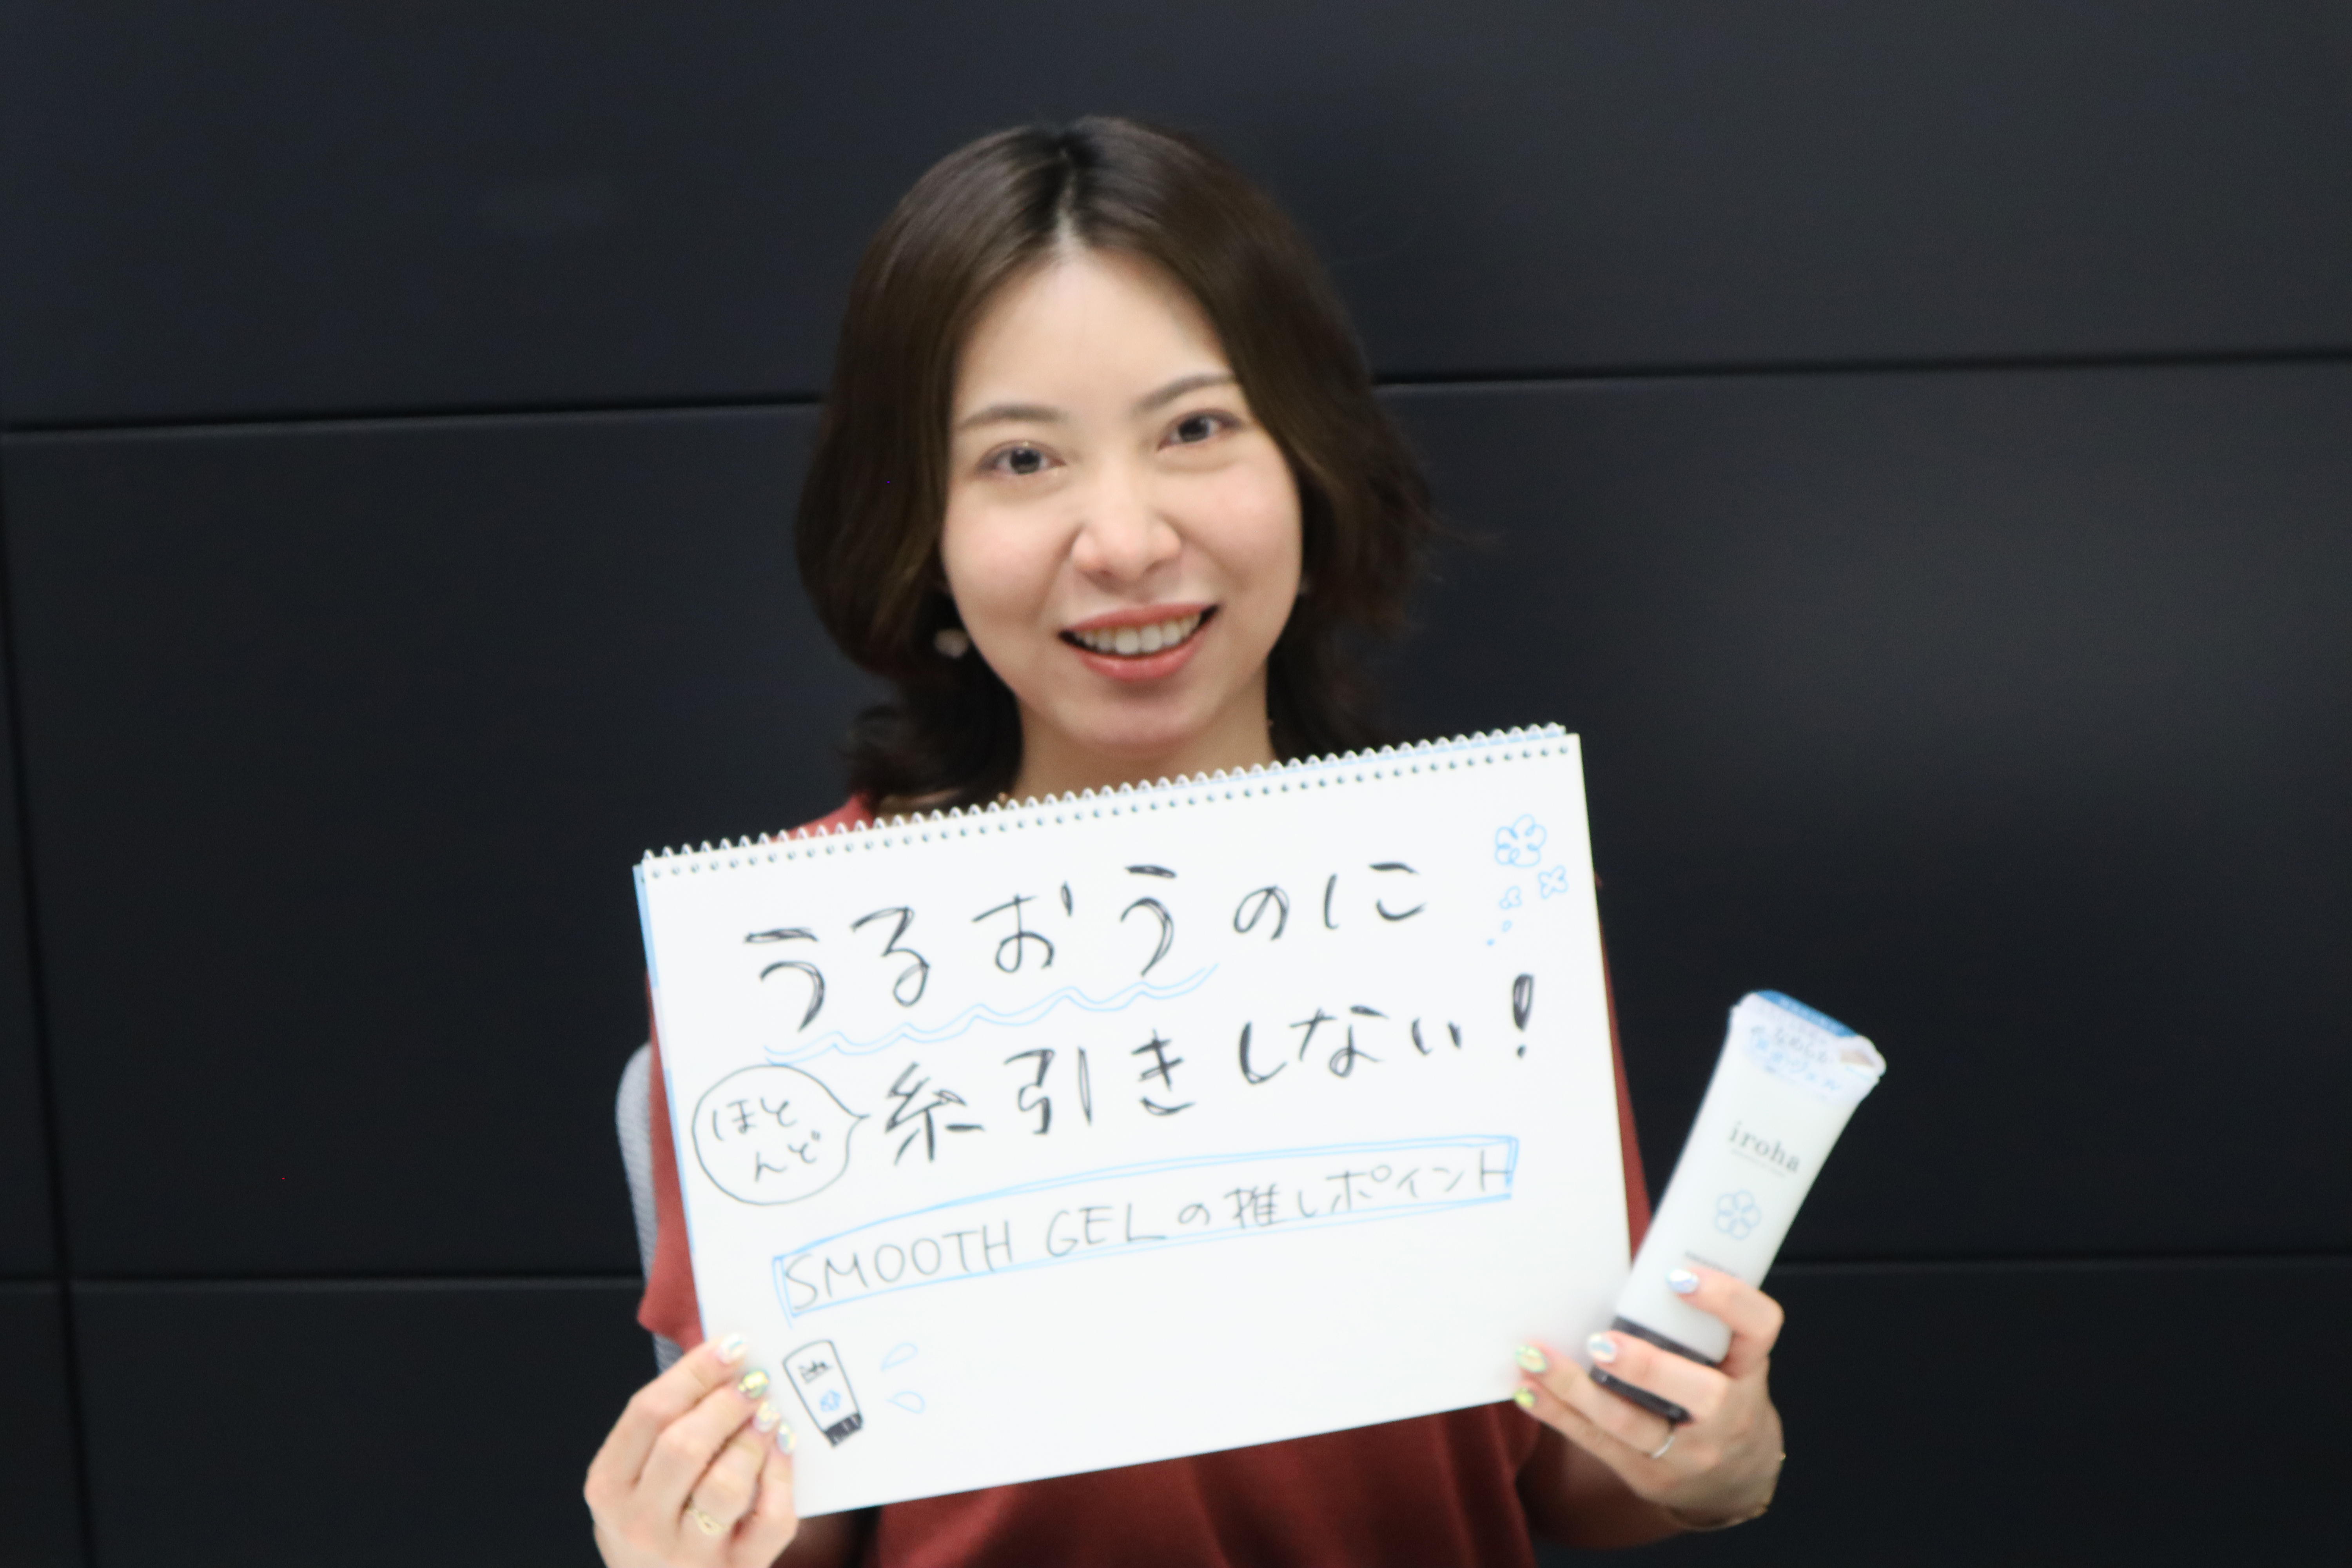 うるおうのに
ほとんど
糸引きしない!
SMOOTH GELの推しポイント
iroha